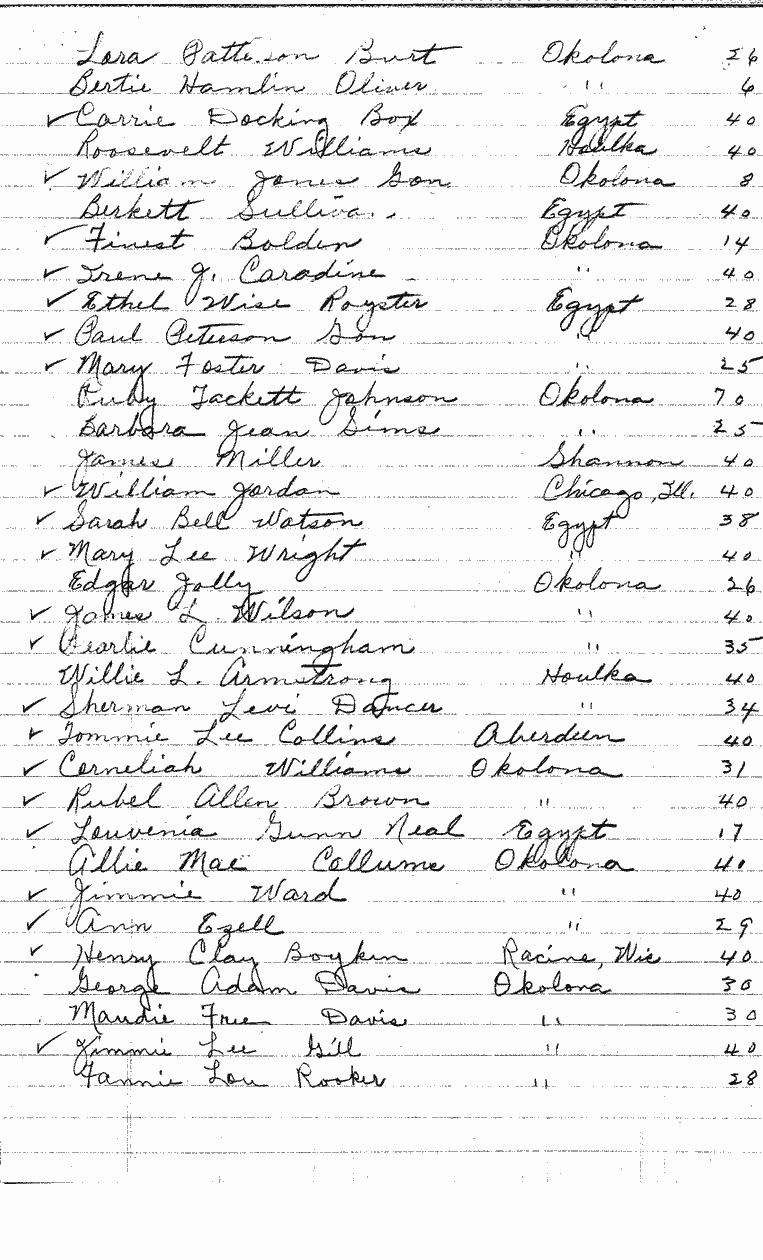 Lora Patterson Burt Okolona 26
Bertie Hamlin Oliver " 6
✓ Carrie Docking Box Egypt 40
Roosevelt Williams Houlka 40
✓ William Jones Gon Okolona 8
Berkett Sulliva Egypt 40
✓ Finest Bolden Okolona 14
✓ Irene J. Caradine " 40
✓ Ethel Wise Royster Egypt 28
✓ Paul Peterson Gon " 40
✓ Mary Foster Davis " 25
Ruby Tackett Johnson Okolona 70
Barbara Jean Sims " 25
James Miller Shannon 40
✓ William Jordan Chicago, Ill. 40
✓ Sarah Bell Watson Egypt 38
✓ Mary Lee Wright " 40
Edgar Jolly Okolona 26
✓ James L. Wilson " 40
✓ Pearlie Cunningham " 35
Willie L. Armstrong Houlka 40
✓ Sherman Levi Dancer " 34
✓ Tommie Lee Collins Aberdeen 40
✓ Corneliah Williams Okolona 31
✓ Rubel Allen Brown " 40
✓ Louvenia Gunn Neal Egypt 17
Allie Mae Collums Okolona 40
✓ Jimmie Ward " 40
✓ Ann Ezell " 29
✓ Henry Clay Boykin Racine, Wis 40
George Adam Davis Okolona 30
Maudie Free Davis " 30
✓ Jimmie Lee Gill " 40
Fannie Lou Rooker " 28